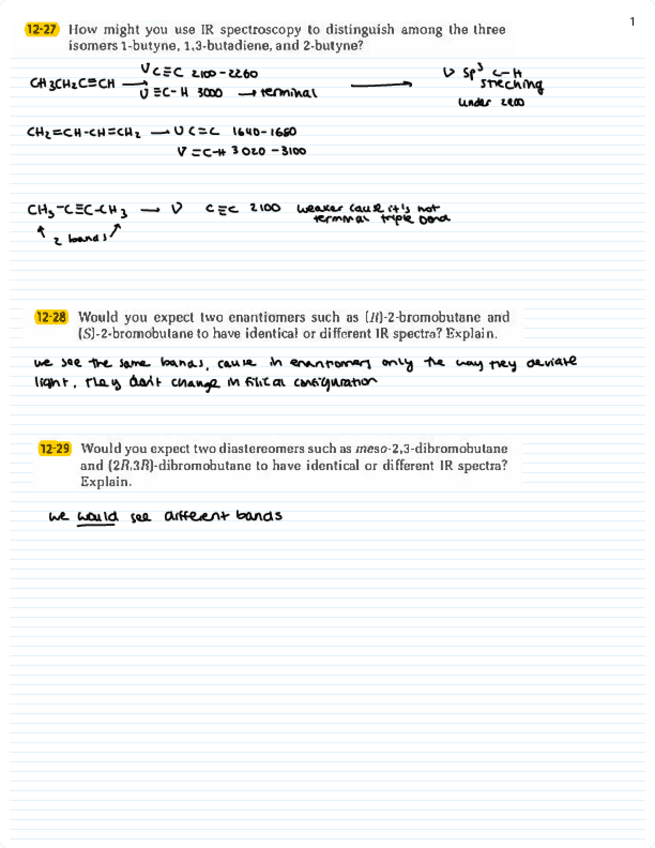 1
12-27 How might you use IR spectroscopy to distinguish among the three
isomers 1-butyne, 1,3-butadiene, and 2-butyne?
CH3CH2C≡CH → ν C≡C 2100-2260 → ν sp³ C-H
ν ≡C-H 3000 → terminal streching
under
CH2=CH-CH=CH2 → ν C=C 1640-1680
ν =C-H 3020-3100
CH3-C≡C-CH3 — ν C≡C 2100 weaker cause it's not
terminal triple bond
↑ 2 bands ↑
12-28 Would you expect two enantiomers such as (R)-2-bromobutane and
(S)-2-bromobutane to have identical or different IR spectra? Explain.
we see the same bands, cause in enantiomers only the way they deviate
light, they don't change in configuration
12-29 Would you expect two diastereomers such as meso-2,3-dibromobutane
and (2R,3R)-dibromobutane to have identical or different IR spectra?
Explain.
we would see different bands